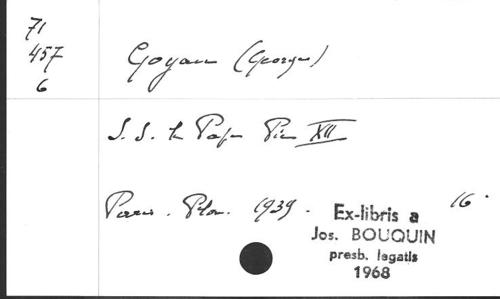 71
457
6
Goyau (Georges)
S. S. le Pape Pie XII
Paris. Plon. 1939. 16°
Ex-libris a
Jos. BOUQUIN
presb. legatis
1968